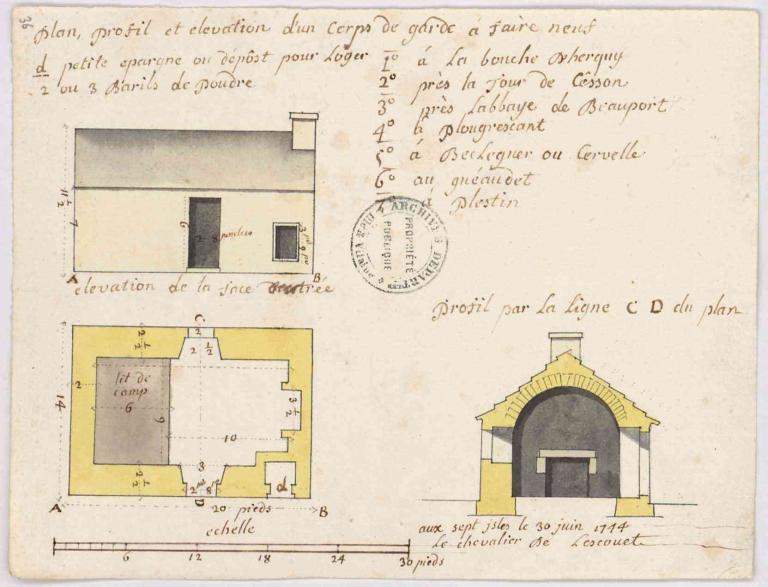 36
Plan, profil et elevation d'un Corps de garde à faire neuf
d petite epargne ou dépôst pour Loger
2 ou 3 Barils de Poudre
1º à La bouche
2º près la Tour de Cesson
3º près Labbaye de Beauport
4º à Plougrescant
5º à Beclegner ou Cervelle
6º au guéaudet
7º à Plestin
ARCHIVES DÉPARTEMENTALES
PROPRIÉTÉ PUBLIQUE
11 1/2
7
6
2
8
pouces
A
B
elevation de la face
C
2
2 1/2
2 1/2
2
lit de camp
6
9
14
3 1/2
10
3
2 1/2
2
8
d
A
D
20 pieds
B
echelle
6
12
18
24
30 pieds
Profil par La Ligne C D du plan
aux sept isles le 30 juin 1744
Le chevalier De Lescouet